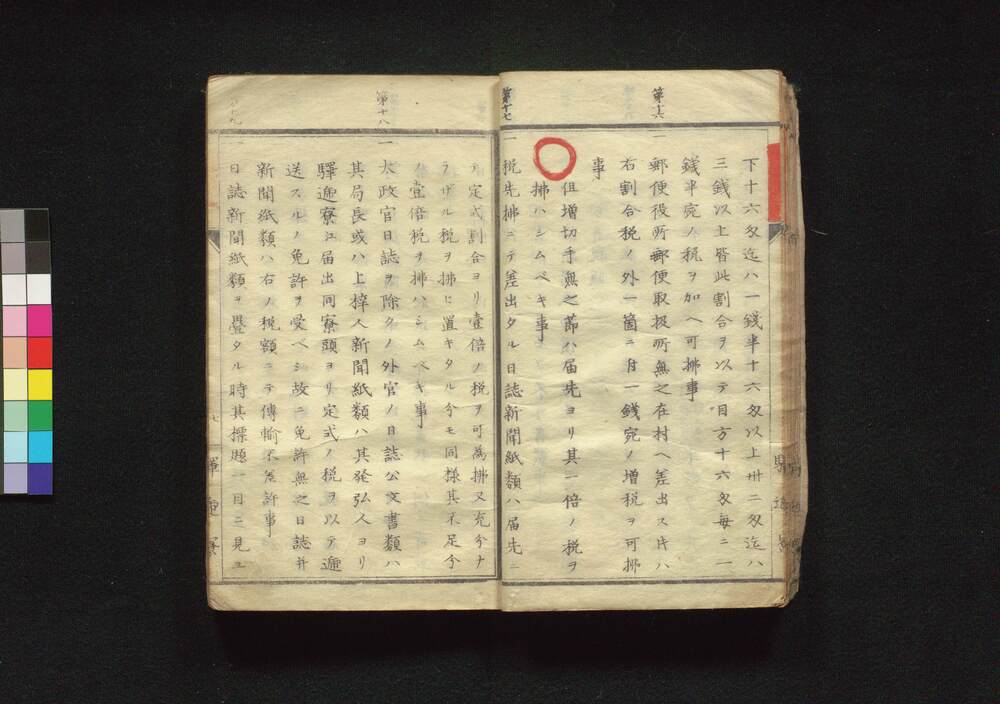 下十六匁迄ハ一錢半十六匁以上卅二匁迄ハ
三錢以上皆此割合ヲ以テ目方十六匁毎ニ一
錢半宛ノ税ヲ加ヘ可拂事
第十六
一
郵便役所郵便取扱所無之在村ヘ差出スハ
右割合税ノ外一箇ニ付一錢宛ノ増税ヲ可拂
事
但増切手無之節ハ届先ヨリ其一倍ノ税ヲ
拂ハシムベキ事
第十七
一
税先拂ニテ差出タル日誌新聞紙類ハ届先ニ
テ定式割合ヨリ壹倍ノ税ヲ可為拂又充分ナ
ラザル税ヲ拂ヒ置キタル分モ同様其不足分
ノ壹倍税ヲ拂ハシムベキ事
第十八
一
太政官日誌ヲ除クノ外官ノ日誌公文書類ハ
其局長或ハ上梓人新聞紙類ハ其發弘人ヨリ
驛遞寮江届出同寮頭ヨリ定式ノ税ヲ以テ遞
送スルノ免許ヲ受ベシ故ニ免許無之日誌并
新聞紙類ハ右ノ税額ニテ傳輸不差許事
一
日誌新聞紙類ヲ疊タル時其標題一目ニ見ユ
七
驛遞寮